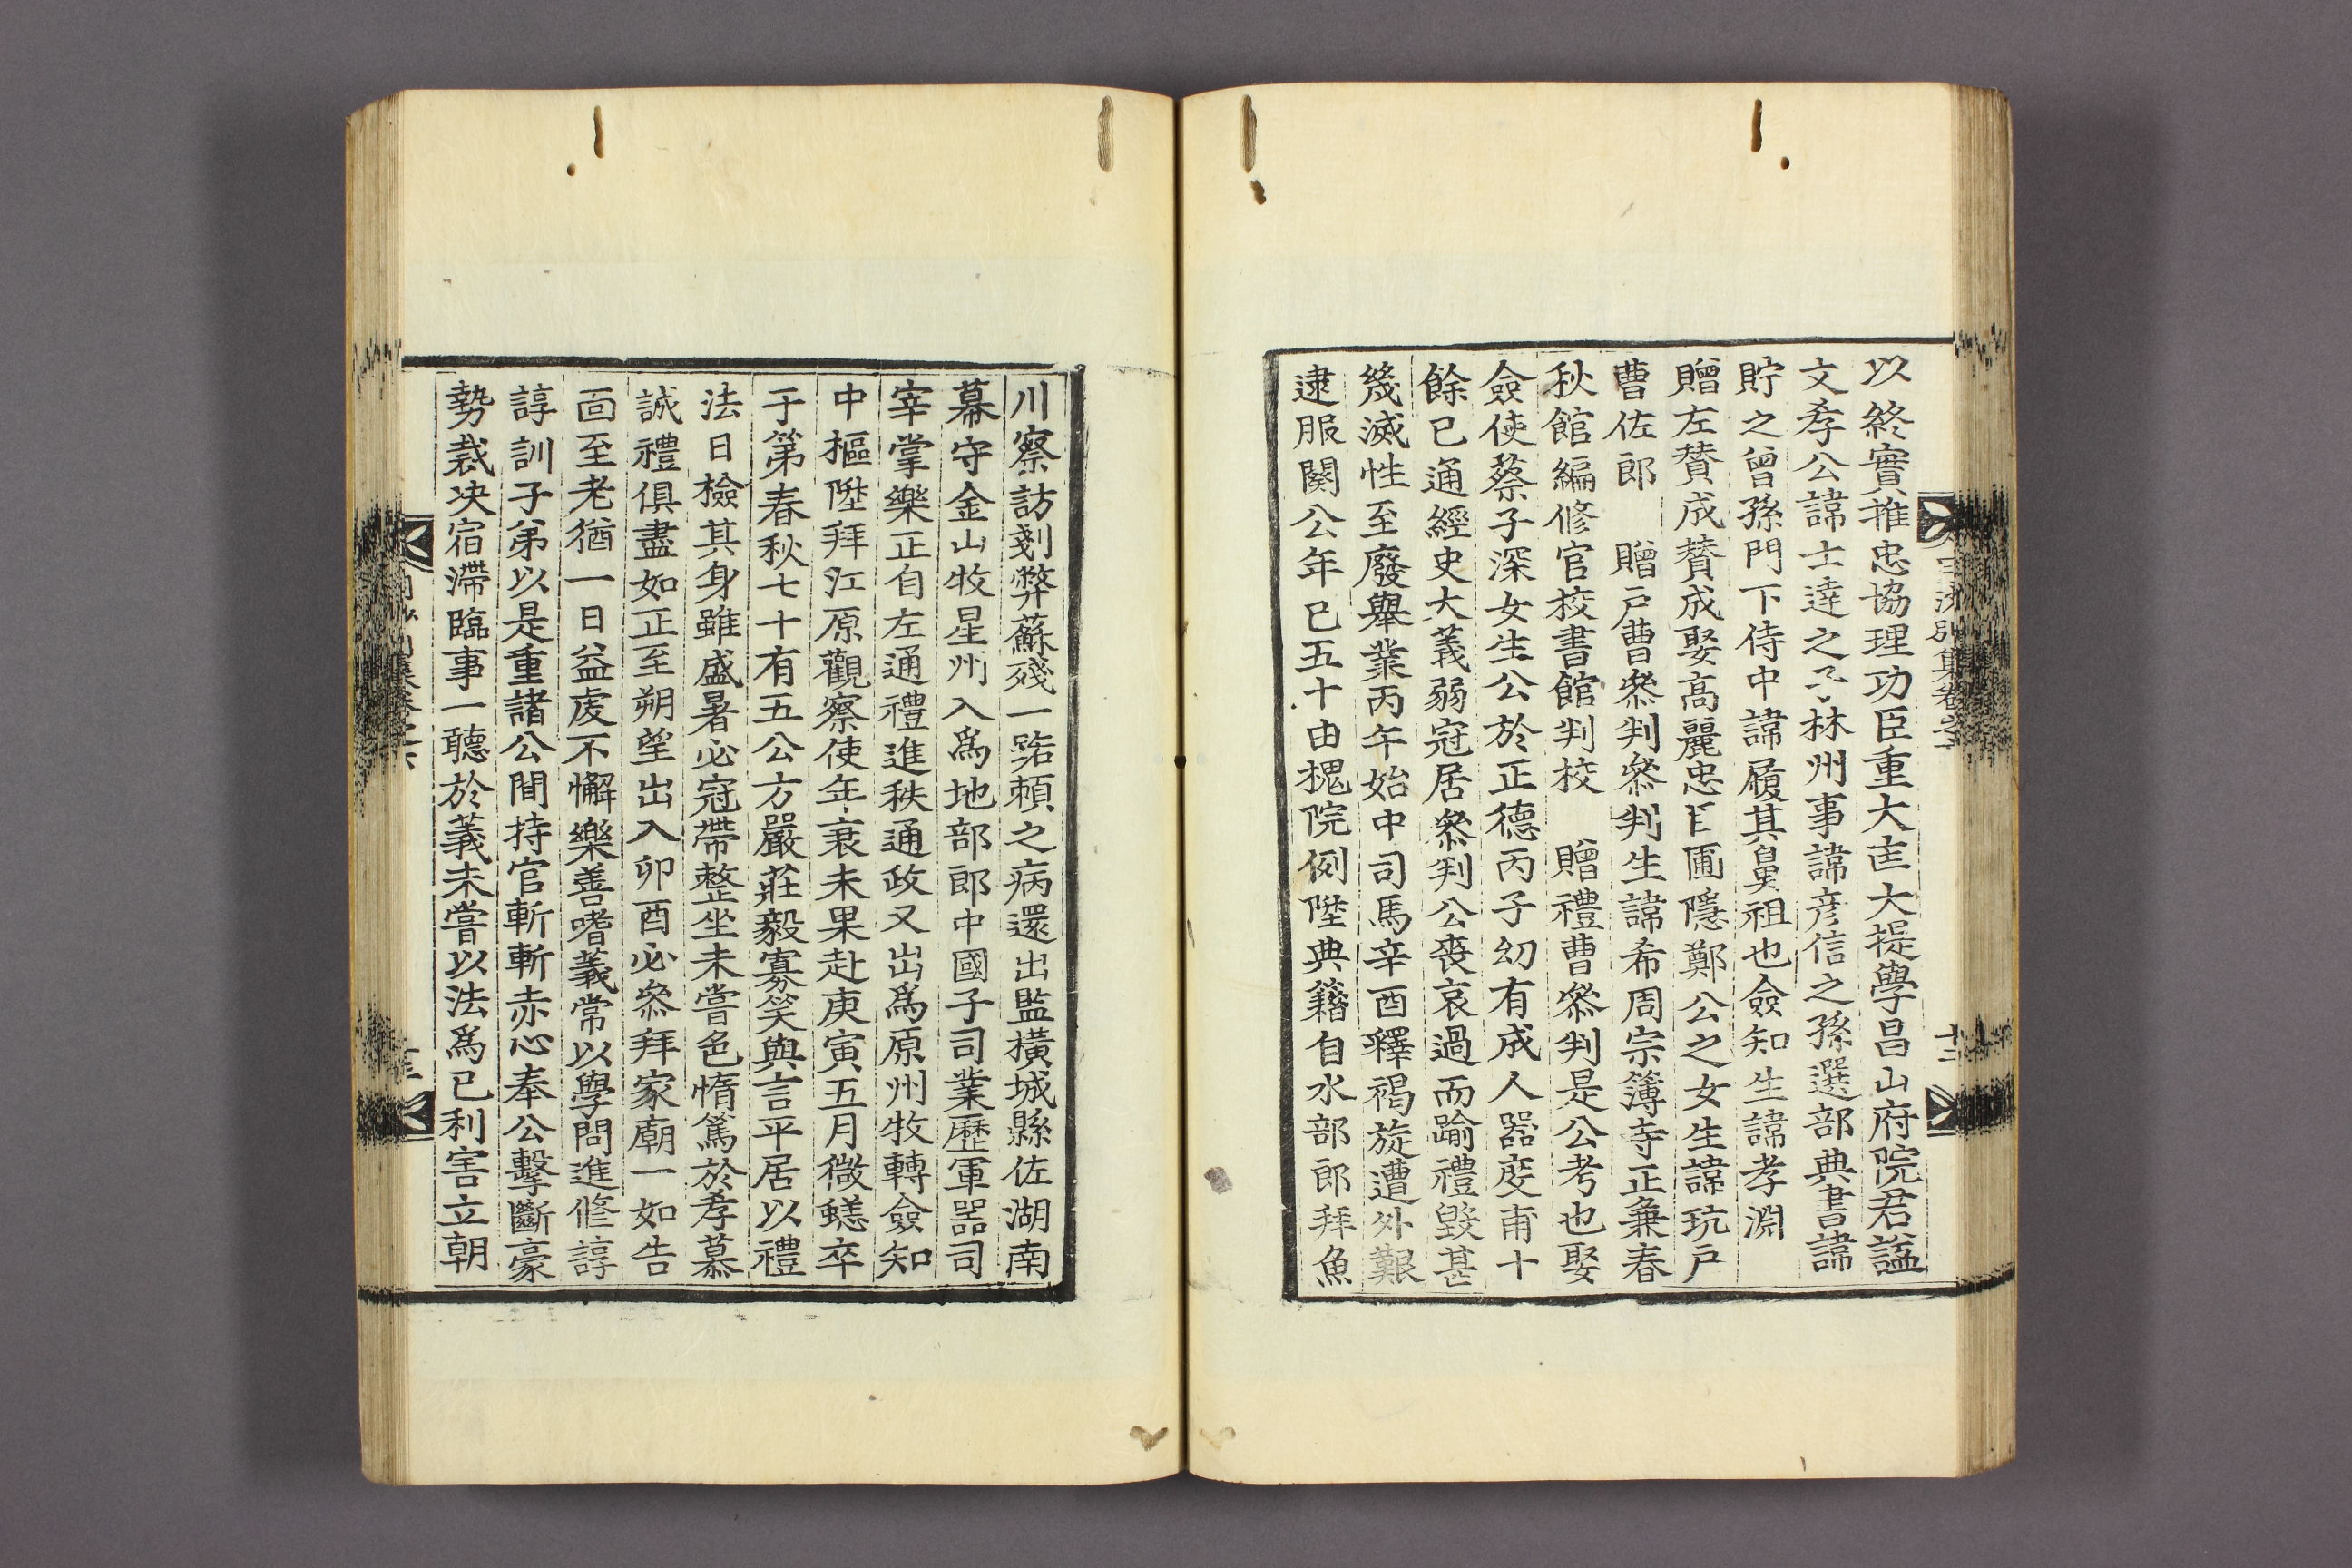 以終實推忠協理功臣重大匡大提學昌山府院君諡
文孝公諱士達之子林州事諱彦信之孫選部典書諱
貯之曾孫門下侍中諱履其鼻祖也僉知生諱孝淵
贈左賛成賛成娶高麗忠臣圃隱鄭公之女生諱玩戶
曹佐郎 贈戶曹叅判叅判生諱希周宗簿寺正兼春
秋館編修官校書館判校 贈禮曹叅判是公考也娶
僉使蔡子深女生公於正德丙子幼有成人器度甫十
餘已通經史大義弱冠居叅判公喪哀過而踰禮毀甚
幾滅性至廢舉業丙午始中司馬辛酉釋褐旋遭外艱
逮服闋公年已五十由槐院例陞典籍自水部郎拜魚
川察訪刬弊蘇殘一路頼之病還出監橫城縣佐湖南
幕守金山牧星州入爲地部郎中國子司業歷軍器司
宰掌樂正自左通禮進秩通政又出爲原州牧轉僉知
中樞陞拜江原觀察使年衰未果赴庚寅五月微恙卒
于第春秋七十有五公方嚴莊毅寡笑與言平居以禮
法日檢其身雖盛暑必冠帶整坐未嘗色惰篤於孝慕
誠禮俱盡如正至朔望出入卯酉必叅拜家廟一如告
面至老猶一日益虔不懈樂善嗜義常以學問進修諄
諄訓子弟以是重諸公間持官斬斬赤心奉公擊斷豪
勢裁决宿滯臨事一聽於義未嘗以法爲已利害立朝